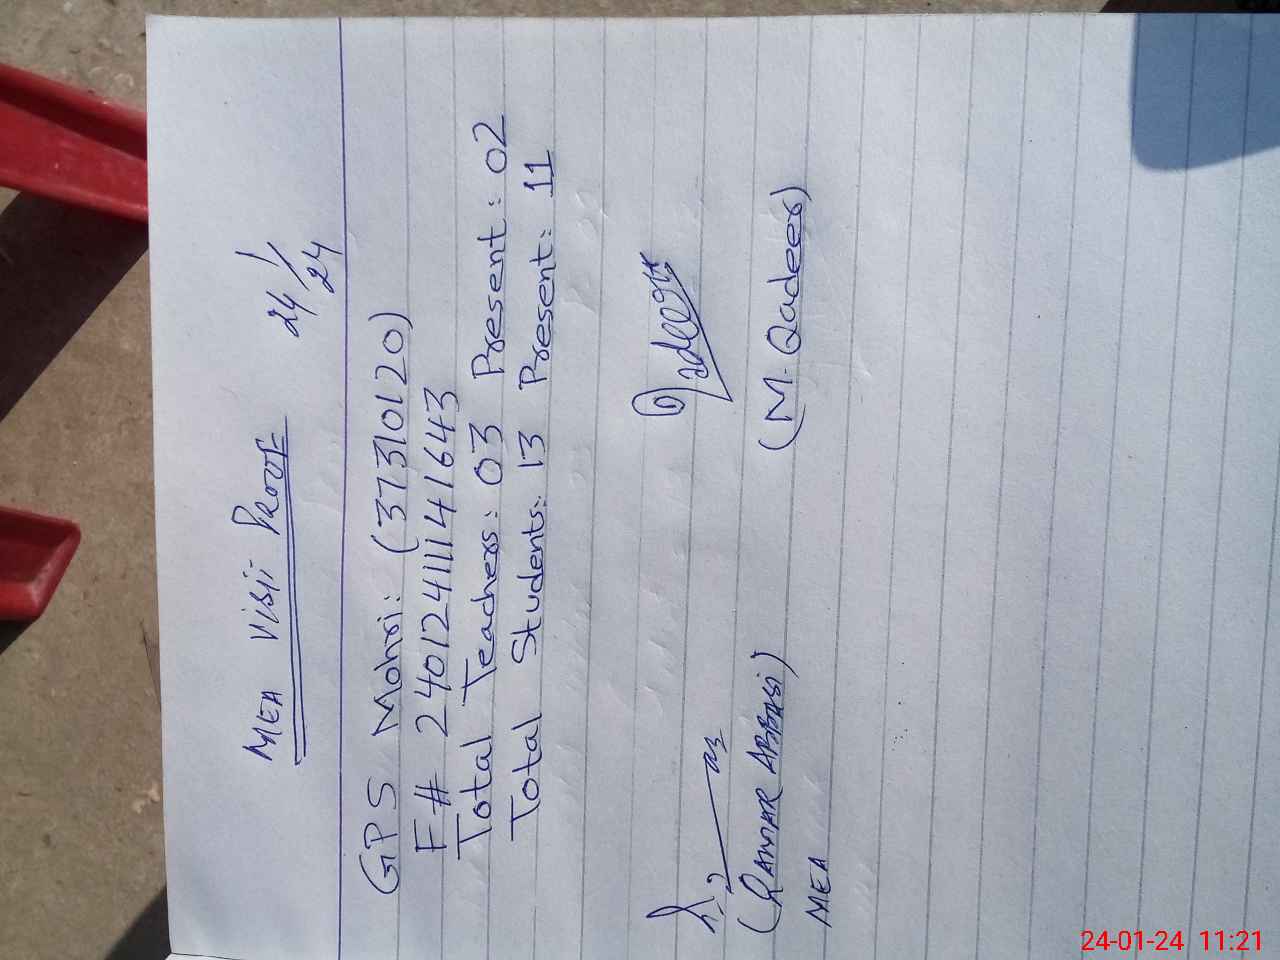 MEA Visit Proof
24/1/24
GPS Mohri: (37310120)
F# 2401241114 1643
Total Teachers: 03 Present: 02
Total Students: 13 Present: 11
Qadeer
(QAMAR ABBASI) (M. Qadeer)
MEA
24-01-24 11:21